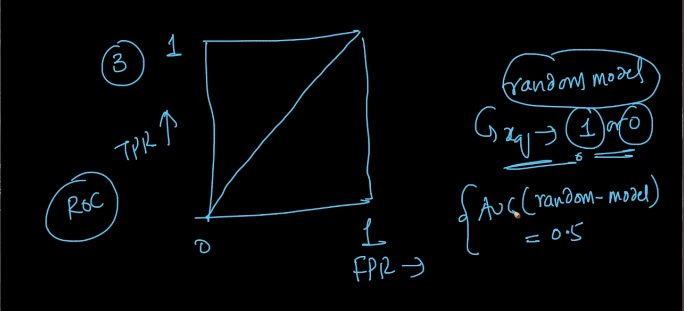 3
1
TPR ↑
ROC
0
1
FPR →
random model
↳ xq → 1 or 0
{ AUC(random-model)
= 0.5